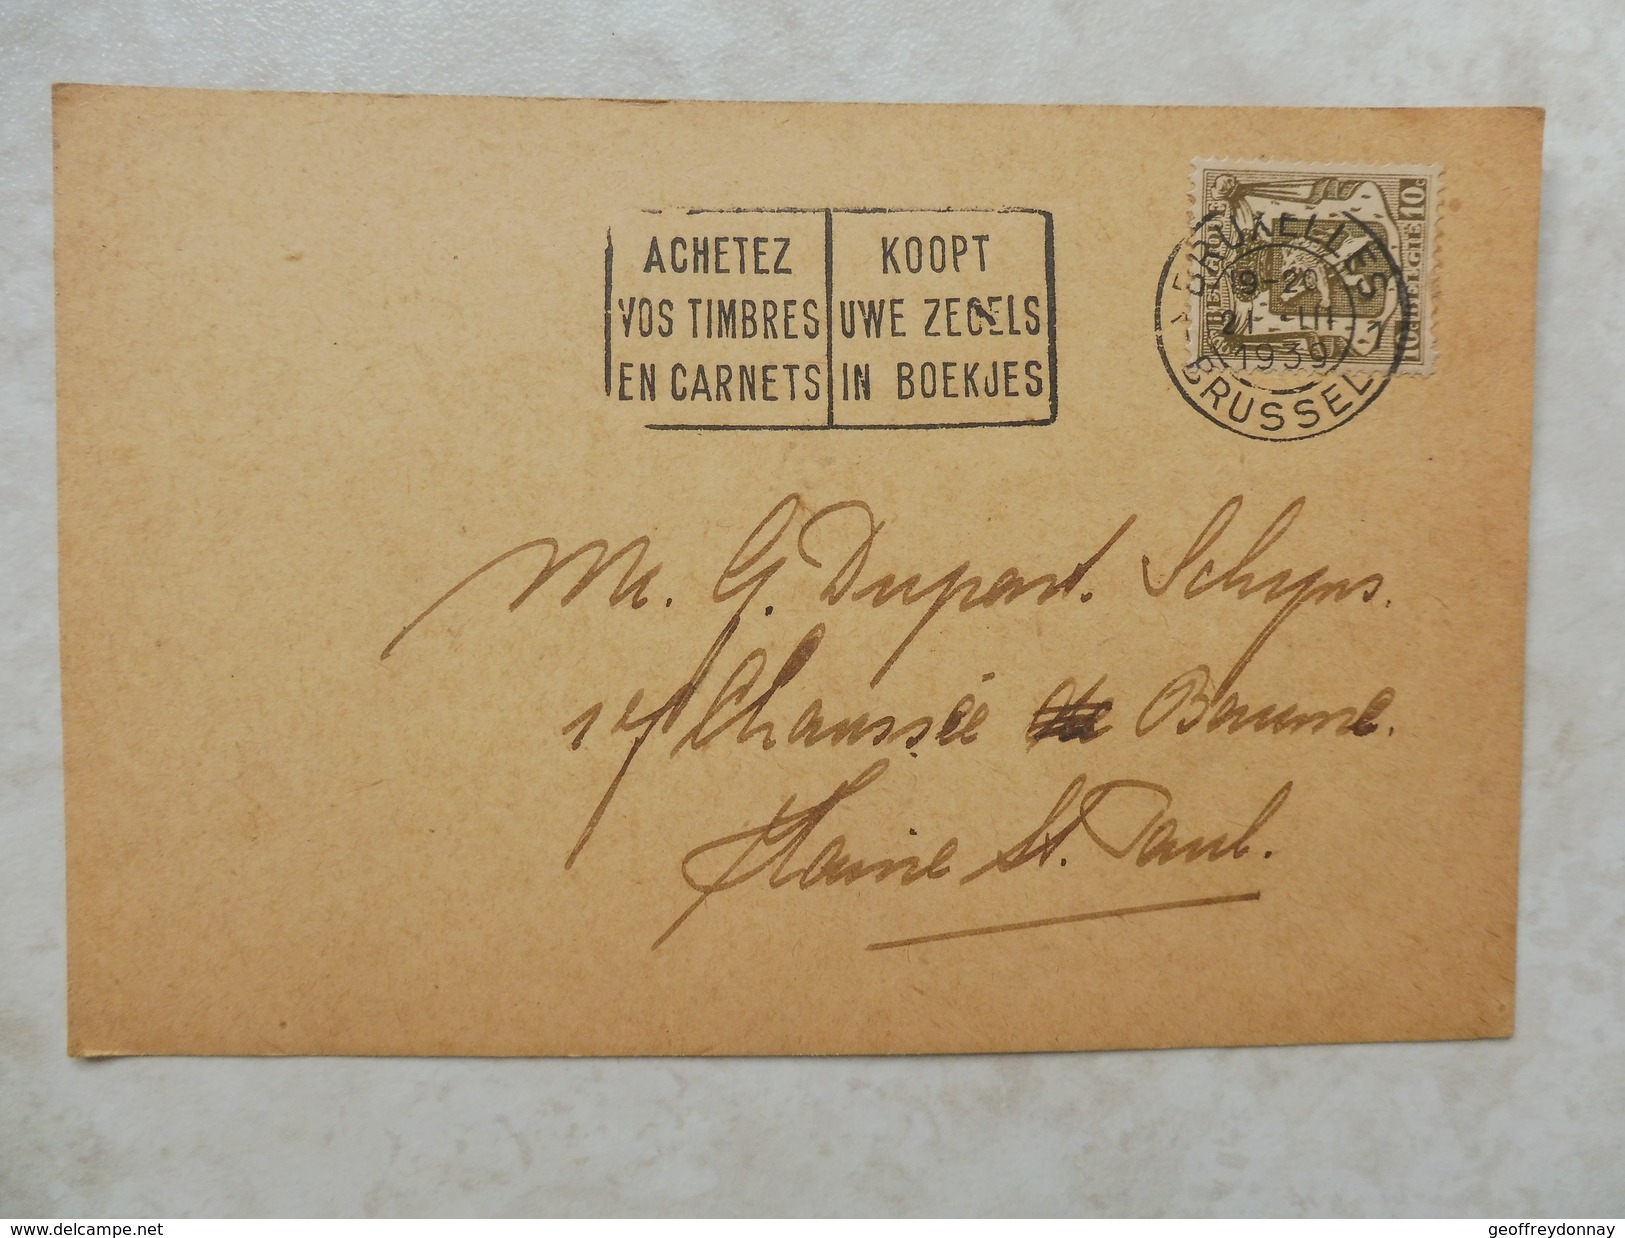 ACHETEZ
VOS TIMBRES
EN CARNETS
KOOPT
UWE ZEGELS
IN BOEKJES
BRUXELLES 1
19-20
21 -III
1939
BRUSSEL
BELGIQUE 10c
BELGIE 10c
Mr. G. Dupont. Schyns.
Chaussée de Baume.
Haine St. Paul.
www.delcampe.net
geoffreydonnay